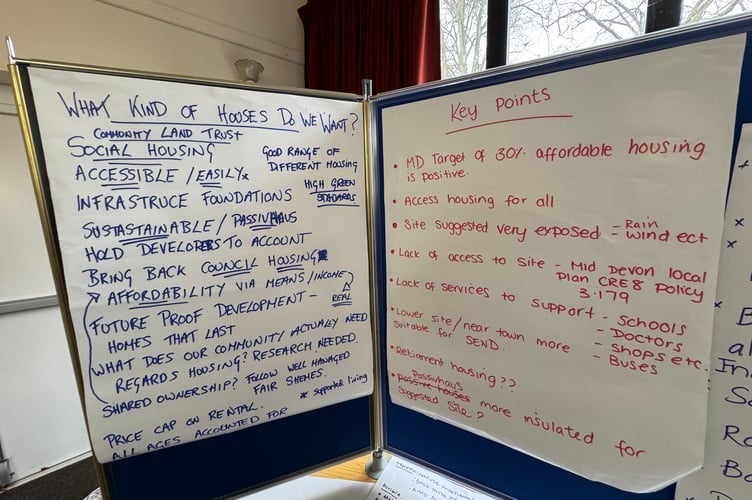 WHAT KIND OF HOUSES DO WE WANT?
COMMUNITY LAND TRUST
SOCIAL HOUSING
GOOD RANGE OF
DIFFERENT HOUSING
ACCESSIBLE / EASILY *
HIGH GREEN
STADARDS
INFRASTRUCE FOUNDATIONS
SUSTASTAINABLE / PASSIVHAUS
HOLD DEVELOPERS TO ACCOUNT
BRING BACK COUNCIL HOUSING
AFFORDABILITY VIA MEANS/INCOME
REAL
FUTURE PROOF DEVELOPMENT –
HOMES THAT LAST
WHAT DOES OUR COMMUNITY ACTUALLY NEED
REGARDS HOUSING? RESEARCH NEEDED.
SHARED OWNERSHIP? FOLLOW WELL MANAGED
FAIR SHEMES.
* supported living
PRICE CAP ON RENTAL.
ALL AGES ACCOUNTED FOR
Key Points
• MD Target of 30% affordable housing
is positive.
• Access housing for all
• Site suggested very exposed = Rain
wind ect
• Lack of access to site - Mid Devon local
Plan CRE8 Policy
3.179
• Lack of services to support - Schools
- Doctors
- Shops etc.
- Buses
• Lower site/near town more
suitable for SEND.
• Retirement housing??
Passivhaus
• passive houses more insulated for
suggested site?